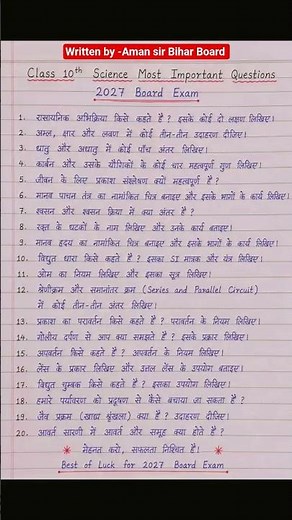 Written by -Aman sir Bihar Board
Class 10th Science Most Important Questions
2027 Board Exam
1. रासायनिक अभिक्रिया किसे कहते है ? इसके कोई दो लक्षण लिखिए।
2. अम्ल, क्षार और लवण में कोई तीन-तीन उदाहरण दीजिए।
3. धातु और अधातु में कोई पाँच अंतर लिखिए।
4. कार्बन और उसके यौगिकों के कोई चार महत्वपूर्ण गुण लिखिए।
5. जीवन के लिए प्रकाश संश्लेषण क्यों महत्वपूर्ण है ?
6. मानव पाचन तंत्र का नामांकित चित्र बनाइए और इसके भागों के कार्य लिखिए।
7. श्वसन और श्वसन क्रिया में क्या अंतर है ?
8. रक्त के घटकों के नाम लिखिए और उनके कार्य बताइए।
9. मानव हृदय का नामांकित चित्र बनाइए और इसके भागों के कार्य लिखिए।
10. विद्युत धारा किसे कहते है ? इसका SI मात्रक और यंत्र लिखिए।
11. ओम का नियम लिखिए और इसका सूत्र लिखिए।
12. श्रेणीक्रम और समानांतर क्रम (Series and Parallel Circuit)
में कोई तीन-तीन अंतर लिखिए।
13. प्रकाश का परावर्तन किसे कहते है ? परावर्तन के नियम लिखिए।
14. गोलीय दर्पण से आप क्या समझते है ? इसके प्रकार लिखिए।
15. अपवर्तन किसे कहते है ? अपवर्तन के नियम लिखिए।
16. लेंस के प्रकार लिखिए और उत्तल लेंस के उपयोग बताइए।
17. विद्युत चुम्बक किसे कहते है ? इसका उपयोग लिखिए।
18. हमारे पर्यावरण को प्रदूषण से कैसे बचाया जा सकता है ?
19. जैव प्रक्रम (खाद्य श्रृंखला) क्या है ? उदाहरण दीजिए।
20. आवर्त सारणी में आवर्त और समूह क्या होते है ?
* मेहनत करो, सफलता निश्चित है। *
Best of Luck for 2027 Board Exam